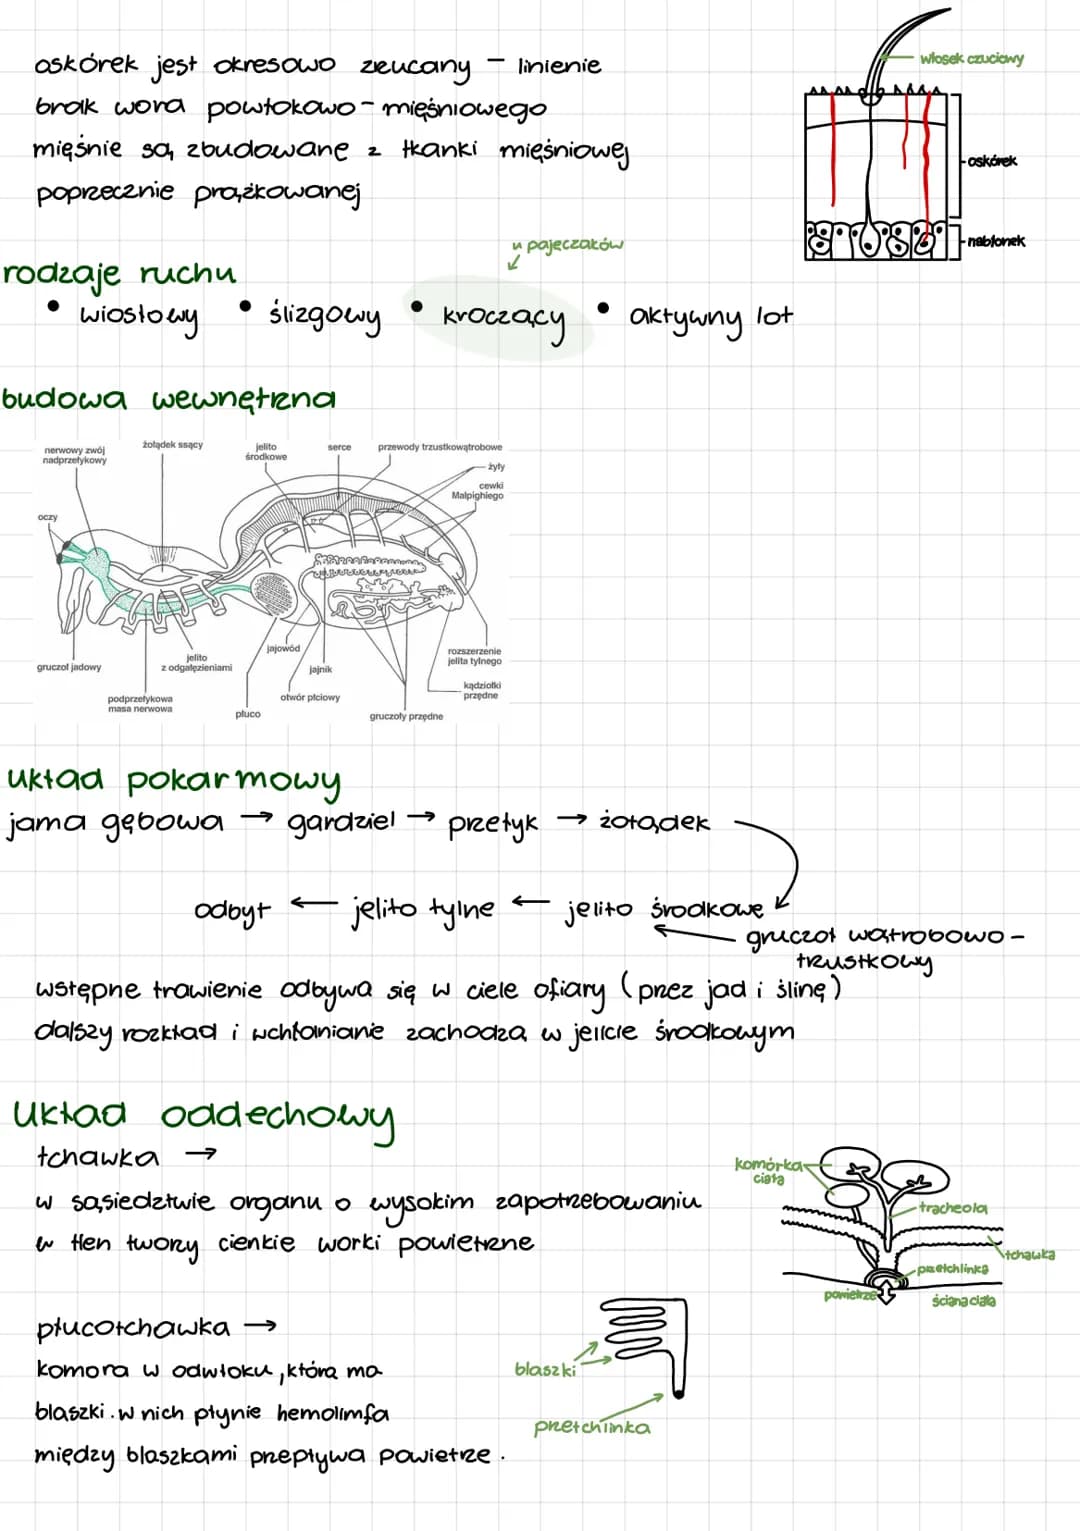 oskórek jest okresowo zrzucany – linienie
brak wora powłokowo-mięśniowego
mięśnie są zbudowane z tkanki mięśniowej
poprzecznie prążkowanej
włosek czuciowy
oskórek
nabłonek
u pajęczaków
rodzaje ruchu
• wiosłowy • ślizgowy • kroczący • aktywny lot
budowa wewnętrzna
nerwowy zwój
nadprzełykowy
żołądek ssący
jelito
środkowe
serce
przewody trzustkowątrobowe
żyły
cewki
Malpighiego
oczy
gruczoł jadowy
podprzełykowa
masa nerwowa
jelito
z odgałęzieniami
płuco
jajowód
otwór płciowy
jajnik
gruczoły przędne
rozszerzenie
jelita tylnego
kądziołki
przędne
układ pokarmowy
jama gębowa → gardziel → przełyk → żołądek
odbyt ← jelito tylne ← jelito środkowe
gruczoł wątrobowo-
trzustkowy
wstępne trawienie odbywa się w ciele ofiary (przez jad i ślinę)
dalszy rozkład i wchłanianie zachodzą w jelicie środkowym
układ oddechowy
tchawka →
w sąsiedztwie organu o wysokim zapotrzebowaniu
w tlen tworzy cienkie worki powietrzne
komórka
ciała
tracheola
tchawka
przetchlinka
powietrze
ściana ciała
płucotchawka →
komora w odwłoku, która ma
blaszki. w nich płynie hemolimfa
między blaszkami przepływa powietrze.
blaszki
przetchlinka